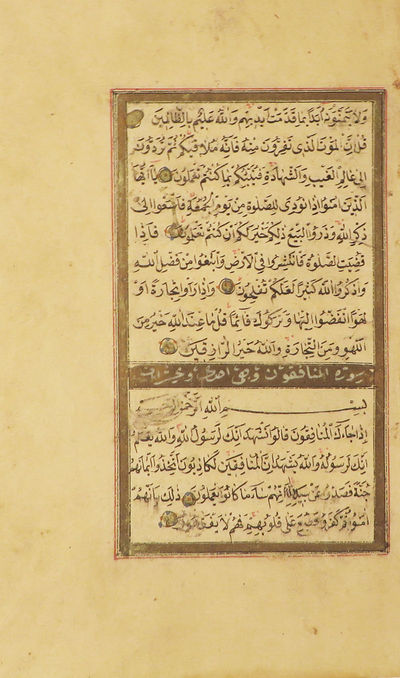 ولا يتمنونه ابدا بما قدمت ايديهم والله عليم بالظالمين
قل ان الموت الذي تفرون منه فانه ملاقيكم ثم تردون
الى عالم الغيب والشهادة فينبئكم بما كنتم تعملون يا ايها
الذين امنوا اذا نودى للصلوة من يوم الجمعة فاسعوا الى
ذكر الله وذروا البيع ذلكم خير لكم ان كنتم تعلمون فاذا
قضيت الصلوة فانتشروا في الارض وابتغوا من فضل الله
واذكروا الله كثيرا لعلكم تفلحون واذا راوا تجارة او
لهوا انفضوا اليها وتركوك قائما قل ما عند الله خير من
اللهو ومن التجارة والله خير الرازقين
سورة المنافقون وهي احدى
بسم الله الرحمن الرحيم
اذا جاءك المنافقون قالوا نشهد انك لرسول الله والله يعلم
انك لرسوله والله يشهد ان المنافقين لكاذبون اتخذوا ايمانهم
جنة فصدوا عن سبيل الله انهم ساء ما كانوا يعملون ذلك بانهم
امنوا ثم كفروا فطبع على قلوبهم فهم لا يفقهون